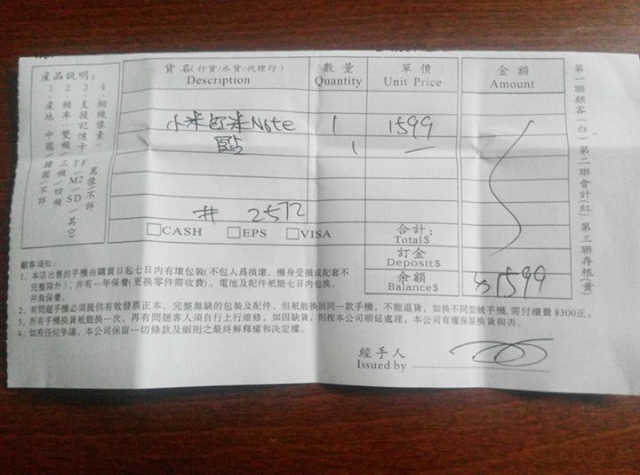 產品說明：
1、產地：中國 韓國 不詳
2、頻率：雙頻 三頻 四頻
3、支援記憶卡：TF M2 SD 其它
4、相機像素： 萬像 不詳
貨名(行貨/水貨/代理行) 數量 單價 金額
Description Quantity Unit Price Amount
小米红米Note 1 1599
1 —
# 2572
CASH EPS VISA 合計:
Total$
訂金
Deposit$
余額
Balance$ 1599
第一聯顧客(白) 第二聯會計(紅) 第三聯存根(黃)
顧客須知：
1、本店出售的手機由購買日起七日內有壞包換(不包人為損壞、機身受損或配套不
完整除外)，并有一年保費(更換零件需收費)，電池及配件紙盤七日內包換，
并負保養。
2、有問題手機必須提供有效發票正本、完整無缺的包裝及配件，但祇能換回同一款手機，不能退貨，如換不同型號手機，需付續費$300正。
3、所有手機換貨祇能換一次，再有問題客人須自行上行維修，如因缺貨，則按本公司順延處理，本公司有權保留換貨與否。
4、如有任何爭議，本公司保留一切條款及細則之最終解釋權和決定權。
經手人
Issued by